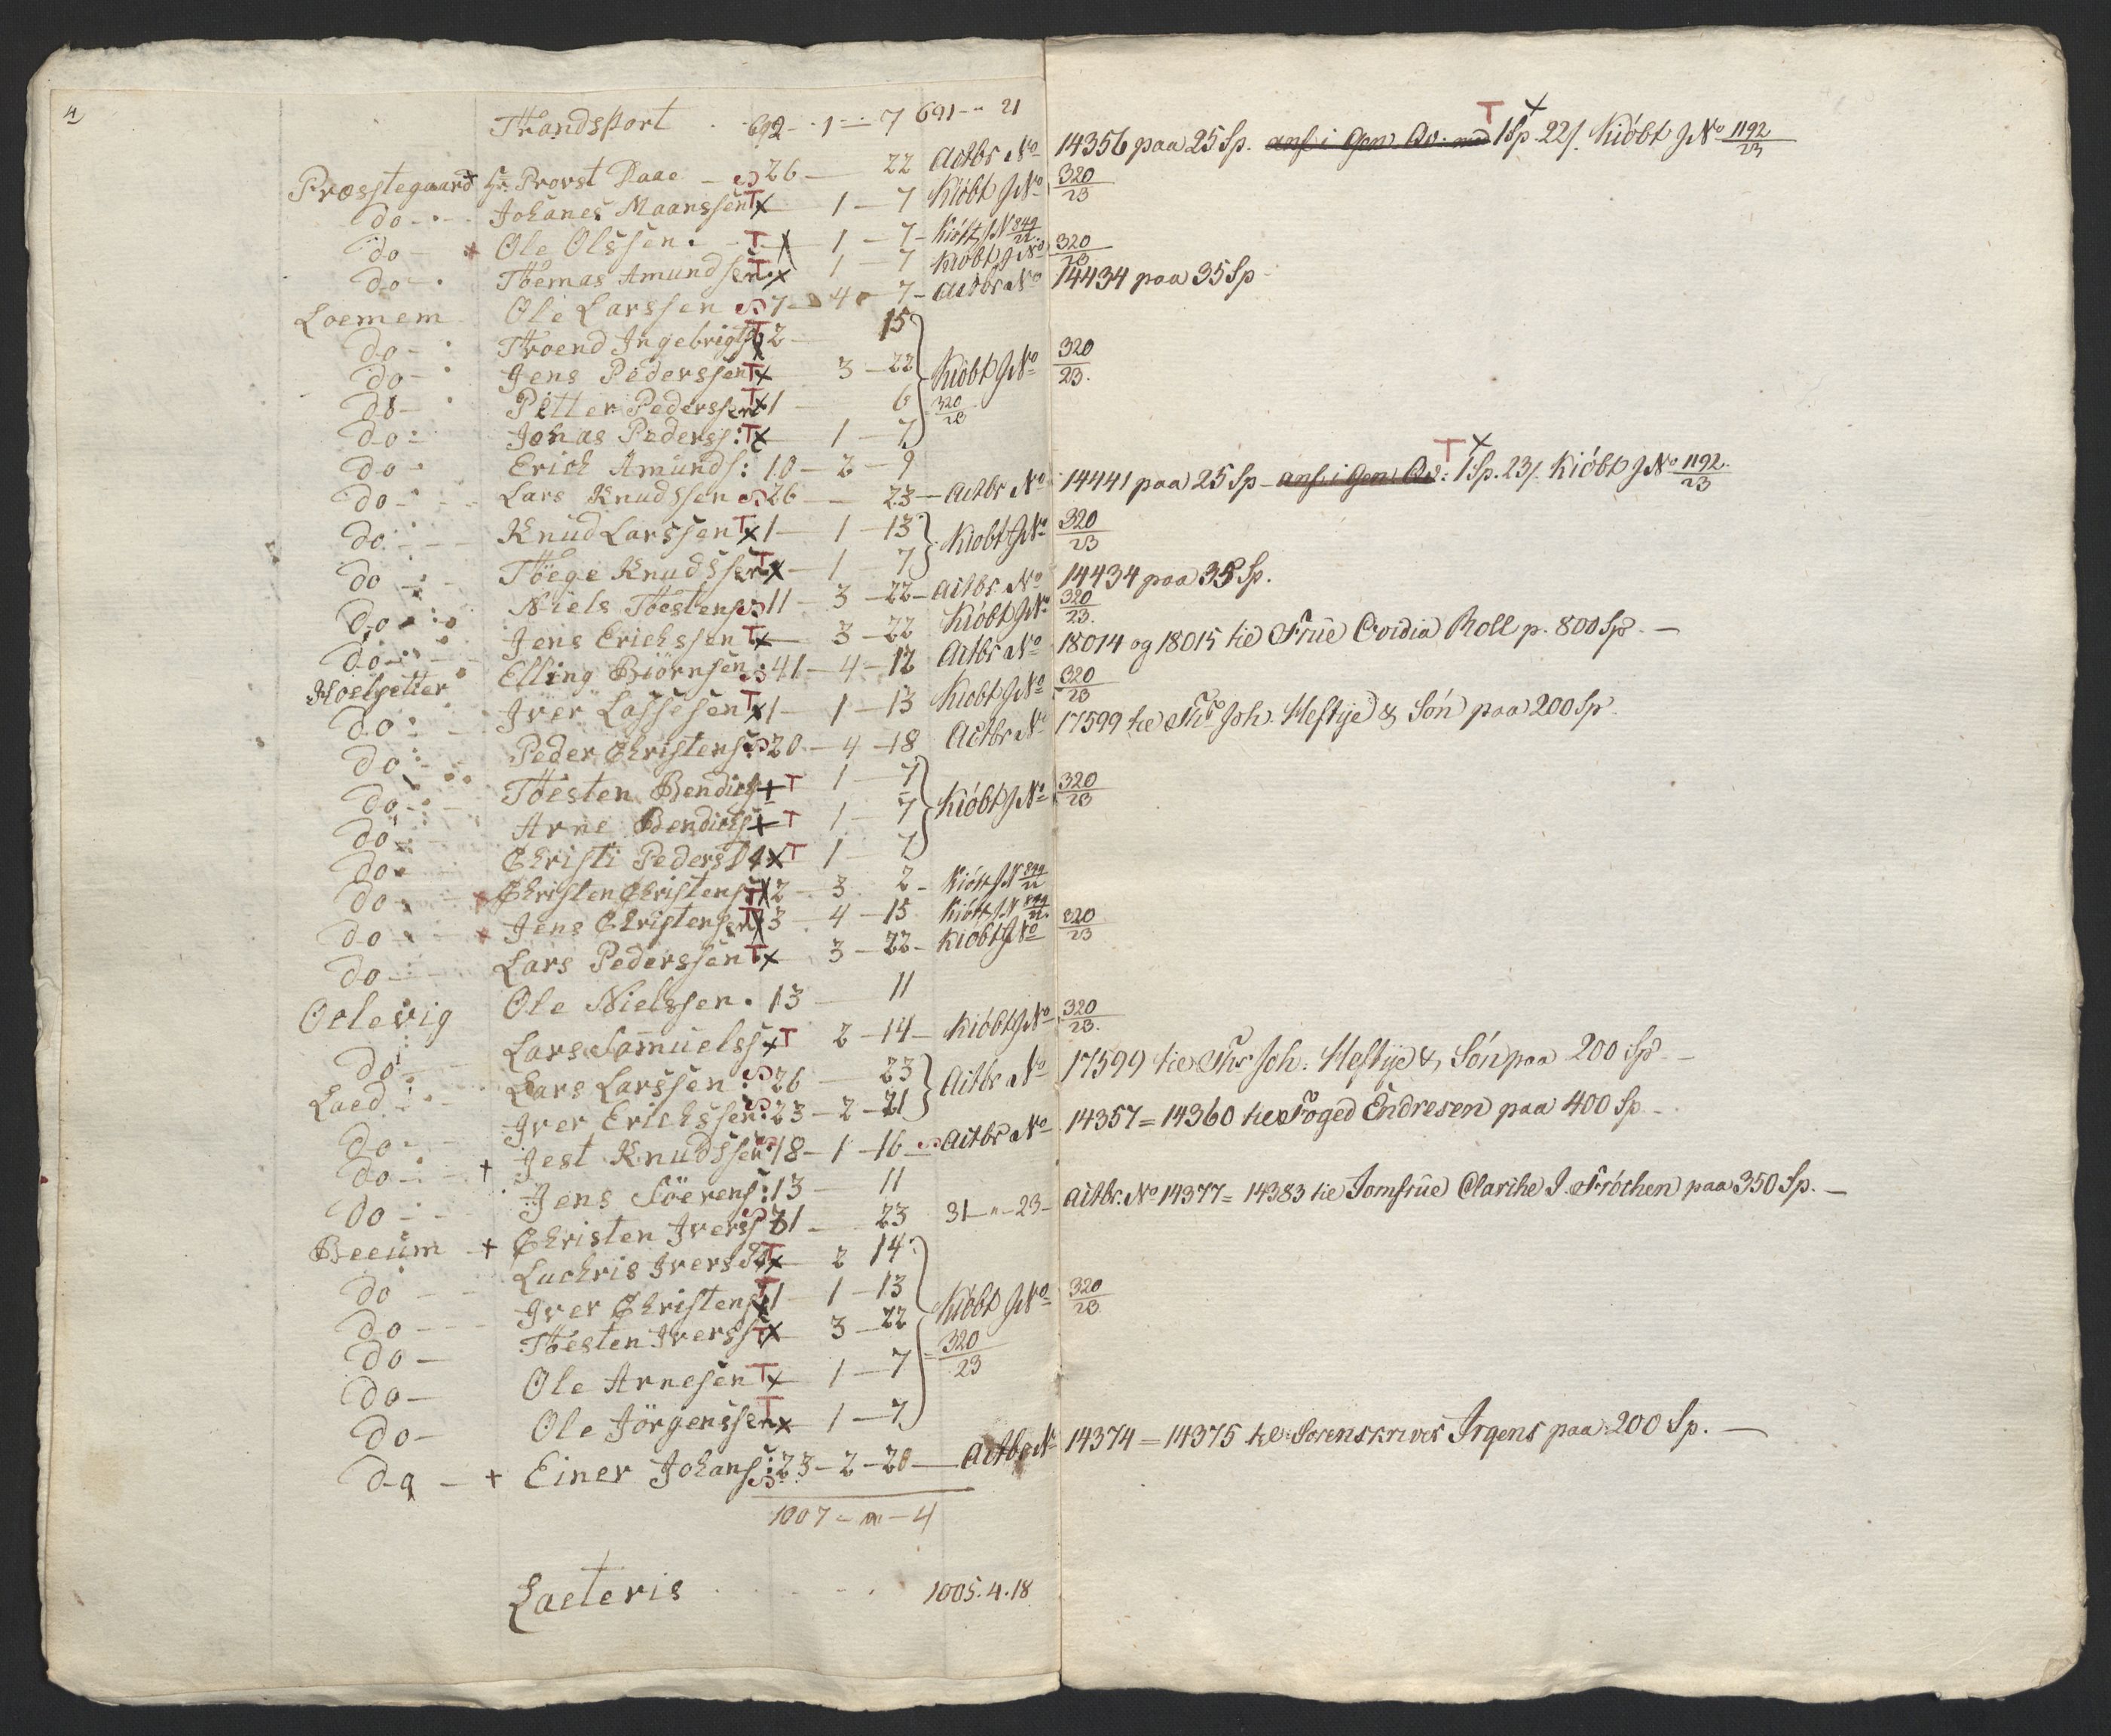 4
Transport 692 - 1 - 7 691 - " 21
Præstegaard + Hr. Provst Daae - 26 - 22 Actbr No 14356 paa 25 Sp. anf. i Gen. Qv. med 1 Sp. 22 s. Kióbt J No 1192/23 T +
do - Johanes Maanssen T x 1 - 7 Kióbt J No 320/23
do - + Ole Olssen. T x 1 - 7 - Kióbt J N 849/22
do - Thomas Amundssen T x 1 - 7 Kióbt J No 320/23
Loemem Ole Larssen 7 - 4 - 7 - Actbr No 14434 paa 35 Sp
do - Troend Ingebrigts T x 2 - 15
do - Jens Pederssen T x 3 - 22 Kióbt J No 320/23.
do - Petter Pederssen T x 1 - 6 320/23
do - Johas Pederss: T x 1 - 7
do - Erich Amunds: 10 - 2 - 9
do - Lars Knudssen 26 - 23 - Actbr No 14441 paa 25 Sp - anf. i Gen. Qv: 1 Sp. 23 s. Kióbt J No 1192/23 T +
do - Knud Larssen T x 1 - 1 - 13 Kiobt J No 320/23
do - Thöge Knudssen T x 1 - 7
do - Niels Thostens 11 - 3 - 22 - Actbr No 14434 paa 35 Sp.
do - Jens Erichssen T x 3 - 22 Kióbt J No 320/23.
Elling Biörnsen: 41 - 4 - 12 Actbr No 18014 og 18015 til Frue Ovidia Roll p. 800 Sp. -
do - Iver Lassesen T x 1 - 1 - 13 Kiobt J No 320/23
do - Peder Christens 20 - 4 - 18 Actbr No 17599 til Ths Joh. Heftye & Són paa 200 Sp.
do - Thosten Bendicts + T 1 - 7
do - Arne Bendicts + T 1 - 7 Kióbt J No 320/23
do - Christi Pedersd x T 1 - 7
do - + Christen Christens T x 2 - 3 2 - Kióbt J N 849/22
do - + Jens Christensen T x 3 - 4 - 15 Kióbt J N 849/22.
do - Lars Pederssen T x 3 - 22 - Kiobt J No 320/23
Orlevig Ole Nielssen. 13 - 11
do - Lars Samuelss x T 2 - 14 - Kióbt J No 320/23.
Laed Lars Larssen: 26 - 23 Actbr No 17599 til Ths Joh. Heftye & Són paa 200 Sp -
do - Iver Erichssen: 23 - 2 - 21
do - + Jest Knudssen 18 - 1 - 16 - Actbr No 14357 = 14360 til Foged Endresen paa 400 Sp -
do - Jens Söerens: 13 - 11
Beeum + Christen Iverss 31 - 23 31 - " - 23 - Actbr. No 14377 = 14383 til Jomfrue Clarihe J. Fróchen paa 350 Sp. -
do - Luchris Iversd T x 2 14
do - Iver Christens T x 1 - 1 - 13 Kióbt J No 320/23
do - Thosten Iverss T x 3 - 22 320/23
do - Ole Arnesen T x 1 - 7
do - Ole Jörgenssen T x 1 - 7
do - + Einer Johans: 23 - 2 - 20 - Actbr N 14374 = 14375 til Sorenskriver Irgens paa 200 Sp. -
1007 - " - 4
Laeteris . . . 1005. 4. 18